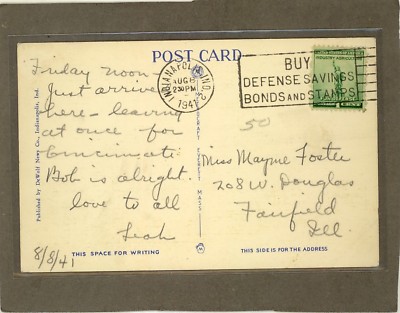 POST CARD
INDIANAPOLIS, IND.
AUG 8
2 30 PM
1941
BUY
DEFENSE SAVINGS
BONDS AND STAMPS
INDUSTRY AGRICULTURE
1 CENT
Friday noon -
Just arrived
here - leaving
at once for
Cincinnati
Bob is alright.
love to all
Leah
50
Miss Mayme Foster
208 W. Douglas
Fairfield
Ill.
Published by DeWolf News Co., Indianapolis, Ind.
8/8/41
THIS SPACE FOR WRITING
THIS SIDE IS FOR THE ADDRESS